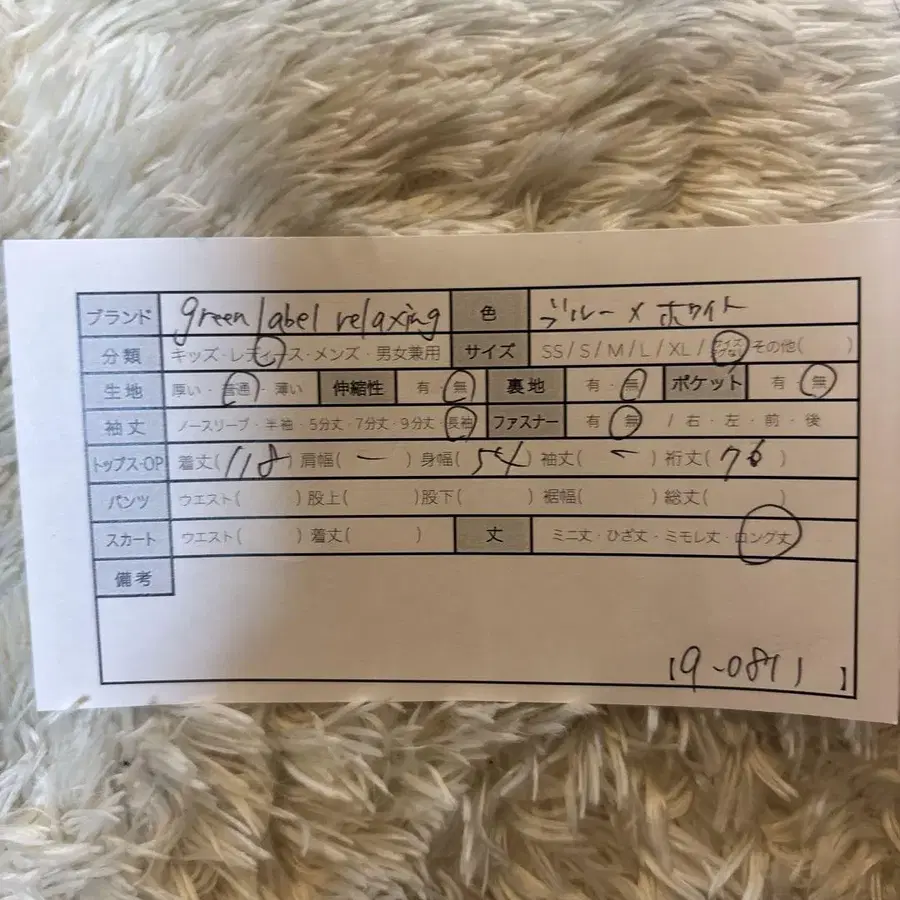 ブランド green label relaxing 色 ブルー×ホワイト
分類 キッズ・レディース・メンズ・男女兼用 サイズ SS/S/M/L/XL/サイズタグなし その他( )
生地 厚い・普通・薄い 伸縮性 有・無 裏地 有・無 ポケット 有・無
袖丈 ノースリーブ・半袖・5分丈・7分丈・9分丈・長袖 ファスナー 有・無 /右・左・前・後
トップス・OP 着丈(118)肩幅(ー)身幅(54)袖丈(ー)裄丈(76)
パンツ ウエスト( )股上( )股下( )裾幅( )総丈( )
スカート ウエスト( )着丈( ) 丈 ミニ丈・ひざ丈・ミモレ丈・ロング丈
備考
19-0871 】